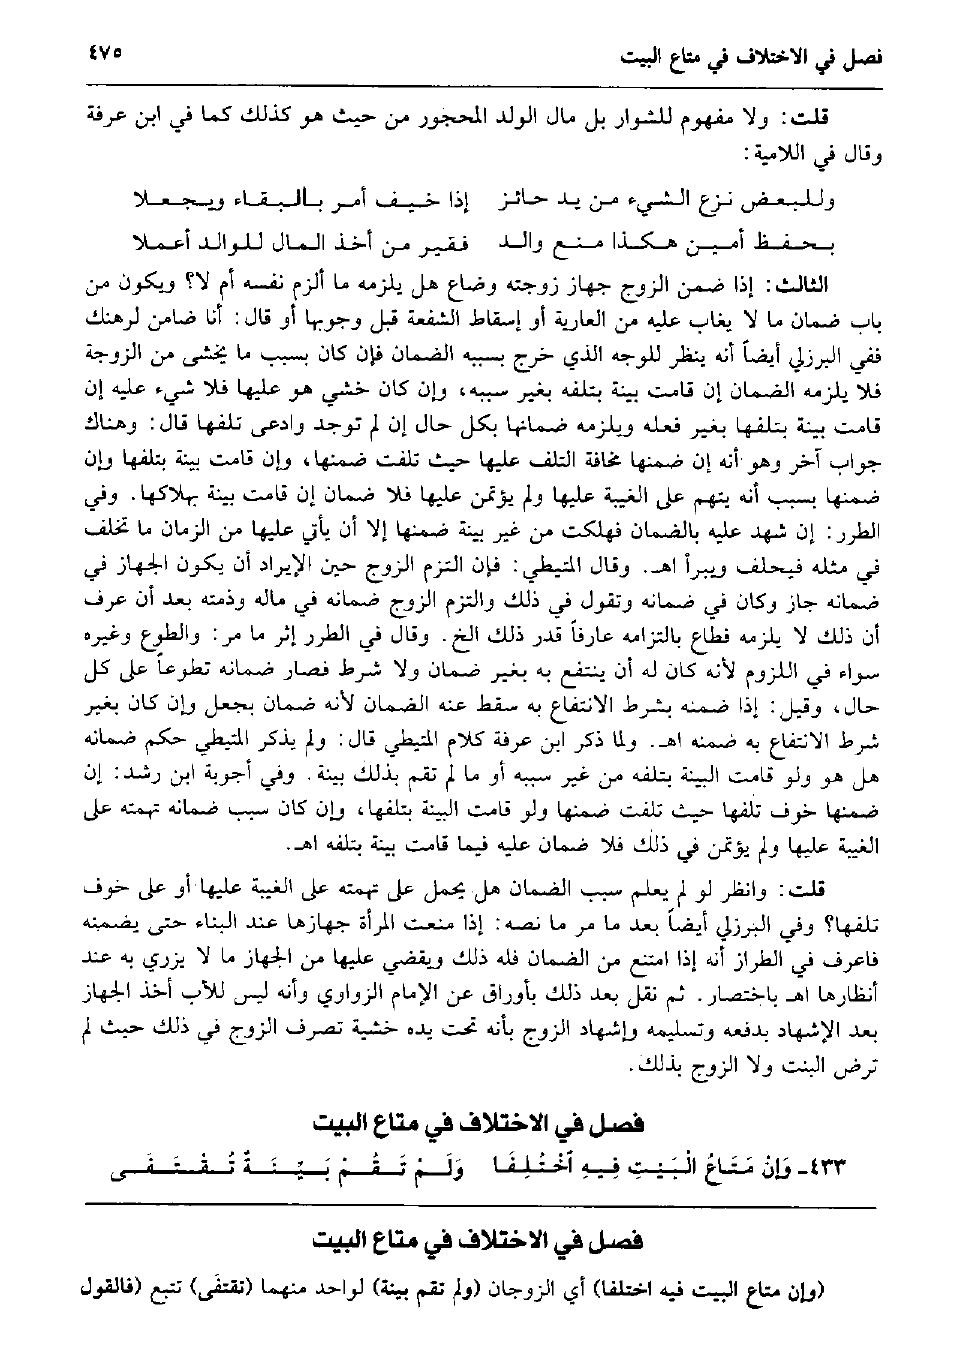 فصل في الاختلاف في متاع البيت ٤٧٥
قلت: ولا مفهوم للشوار بل مال الولد المحجور من حيث هو كذلك كما في ابن عرفة
وقال في اللامية:
وللبعض نزع الشيء من يد حائز إذا خيف أمر بالبقاء ويجعلا
بحفظ أمين هكذا منع والد فقير من أخذ المال للوالد أعملا
الثالث: إذا ضمن الزوج جهاز زوجته وضاع هل يلزمه ما ألزم نفسه أم لا؟ ويكون من
باب ضمان ما لا يغاب عليه من العارية أو إسقاط الشفعة قبل وجوبها أو قال: أنا ضامن لرهنك
ففي البرزلي أيضاً أنه ينظر للوجه الذي خرج بسببه الضمان فإن كان بسبب ما يخشى من الزوجة
فلا يلزمه الضمان إن قامت بينة بتلفه بغير سببه، وإن كان خشي هو عليها فلا شيء عليه إن
قامت بينة بتلفها بغير فعله ويلزمه ضمانها بكل حال إن لم توجد وادعى تلفها قال: وهناك
جواب آخر وهو أنه إن ضمنها مخافة التلف عليها حيث تلفت ضمنها، وإن قامت بينة بتلفها وإن
ضمنها بسبب أنه يتهم على الغيبة عليها ولم يؤتمن عليها فلا ضمان إن قامت بينة بهلاكها. وفي
الطرر: إن شهد عليه بالضمان فهلكت من غير بينة ضمنها إلا أن يأتي عليها من الزمان ما تخلف
في مثله فيحلف ويبرأ اهـ. وقال المتيطي: فإن التزم الزوج حين الإيراد أن يكون الجهاز في
ضمانه جاز وكان في ضمانه وتقول في ذلك والتزم الزوج ضمانه في ماله وذمته بعد أن عرف
أن ذلك لا يلزمه فطاع بالتزامه عارفاً قدر ذلك الخ. وقال في الطرر إثر ما مر: والطوع وغيره
سواء في اللزوم لأنه كان له أن ينتفع به بغير ضمان ولا شرط فصار ضمانه تطوعاً على كل
حال، وقيل: إذا ضمنه بشرط الانتفاع به سقط عنه الضمان لأنه ضمان بجعل وإن كان بغير
شرط الانتفاع به ضمنه اهـ. ولما ذكر ابن عرفة كلام المتيطي قال: ولم يذكر المتيطي حكم ضمانه
هل هو ولو قامت البينة بتلفه من غير سببه أو ما لم تقم بذلك بينة. وفي أجوبة ابن رشد: إن
ضمنها خوف تلفها حيث تلفت ضمنها ولو قامت البينة بتلفها، وإن كان سبب ضمانه تهمته على
الغيبة عليها ولم يؤتمن في ذلك فلا ضمان عليه فيما قامت بينة بتلفه اهـ.
قلت: وانظر لو لم يعلم سبب الضمان هل يحمل على تهمته على الغيبة عليها أو على خوف
تلفها؟ وفي البرزلي أيضاً بعد ما مر ما نصه: إذا منعت المرأة جهازها عند البناء حتى يضمنه
فاعرف في الطراز أنه إذا امتنع من الضمان فله ذلك ويقضي عليها من الجهاز ما لا يزري به عند
أنظارها اهـ باختصار. ثم نقل بعد ذلك بأوراق عن الإمام الزواوي وأنه ليس للأب أخذ الجهاز
بعد الإشهاد بدفعه وتسليمه وإشهاد الزوج بأنه تحت يده خشية تصرف الزوج في ذلك حيث لم
ترض البنت ولا الزوج بذلك.
فصل في الاختلاف في متاع البيت
٤٣٣ـ وَإنْ مَتَاعُ الْبَيْتِ فِيهِ اخْتُلِفَا وَلَمْ تَقُمْ بَيِّنَةٌ تُقْتَفَى
فصل في الاختلاف في متاع البيت
(وإن متاع البيت فيه اختلفا) أي الزوجان (ولم تقم بينة) لواحد منهما (تقتفى) تتبع (فالقول